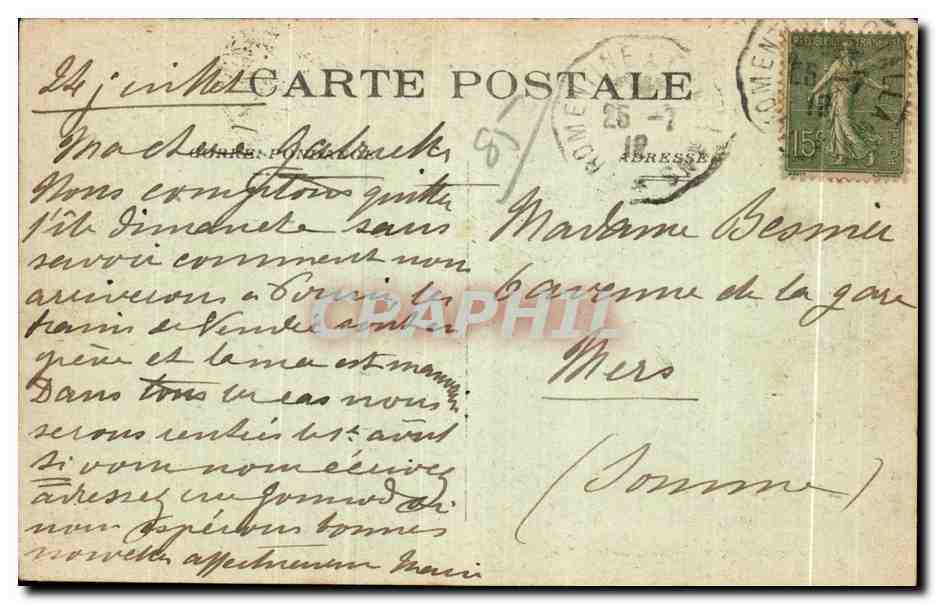 24 juillet
CARTE POSTALE
CORRESPONDANCE
ADRESSE
85
25 -7
15c
Ma chère Gabrielle
Nous comptons quitter
l'île dimanche sans
savoir comment nous
arriverons à les
trains de Vendée sont en
grève et la mer est mauvaise
Dans tous les cas nous
serons rentrés le 1er août
si vous nous écrivez
adressez
nous espérons bonnes
nouvelles affectueusement Marie
Madame Besnier
6 avenue de la gare
Mers
(Somme)
CPAPHIL